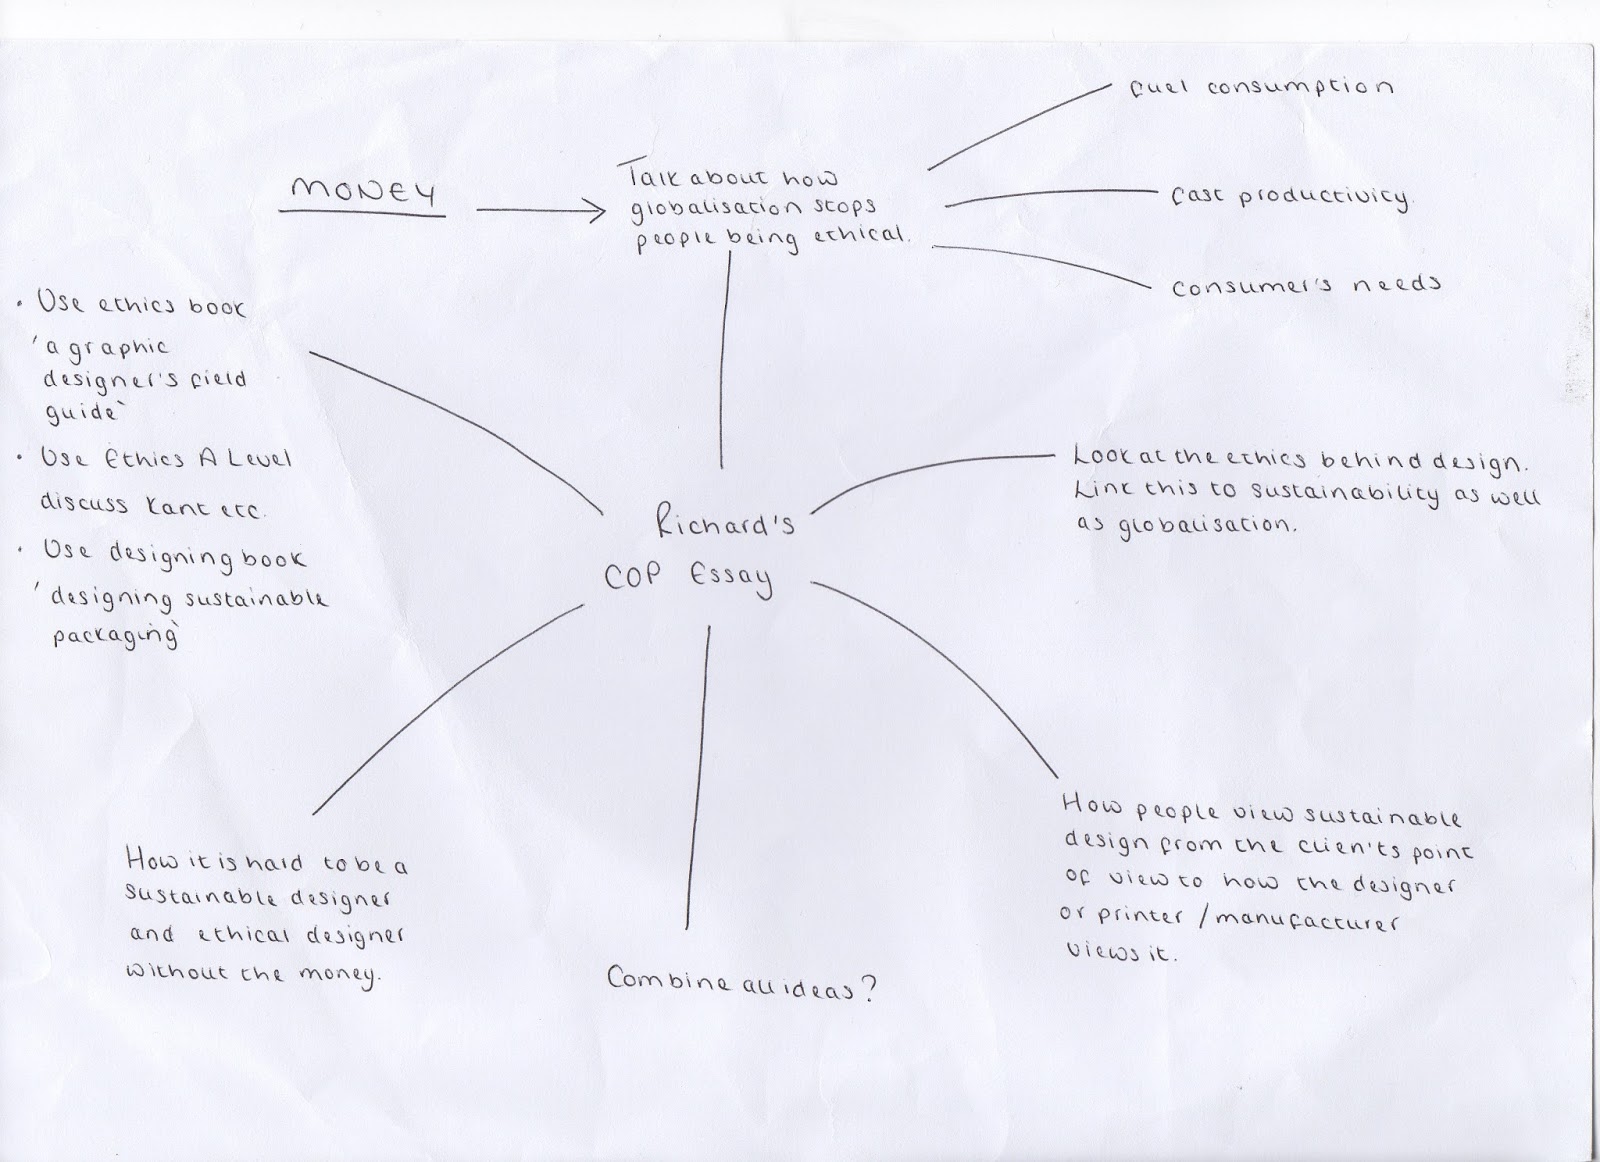 MONEY
Talk about how
globalisation stops
people being ethical.
fuel consumption
fast productivity.
consumer's needs
• Use ethics book
'a graphic
designer's field
guide`
• Use Ethics A Level
discuss Kant etc.
• Use designing book
'designing sustainable
packaging`
Richard's
COP Essay
Look at the ethics behind design.
Link this to sustainability as well
as globalisation.
How it is hard to be a
sustainable designer
and ethical designer
without the money.
Combine all ideas?
How people view sustainable
design from the clien'ts point
of view to how the designer
or printer / manufacturer
views it.